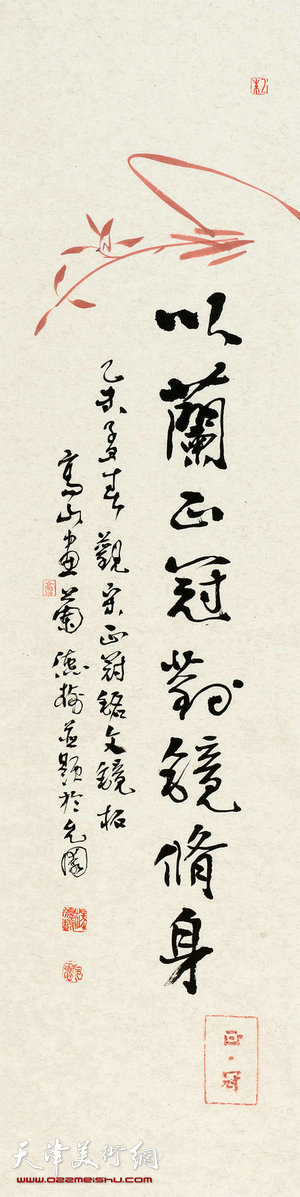 以蘭正冠對鏡脩身
乙未孟春觀宋正冠銘文鏡拓
高山画蘭 德揚並題於
正·冠
天津美術網
www.022meishu.com